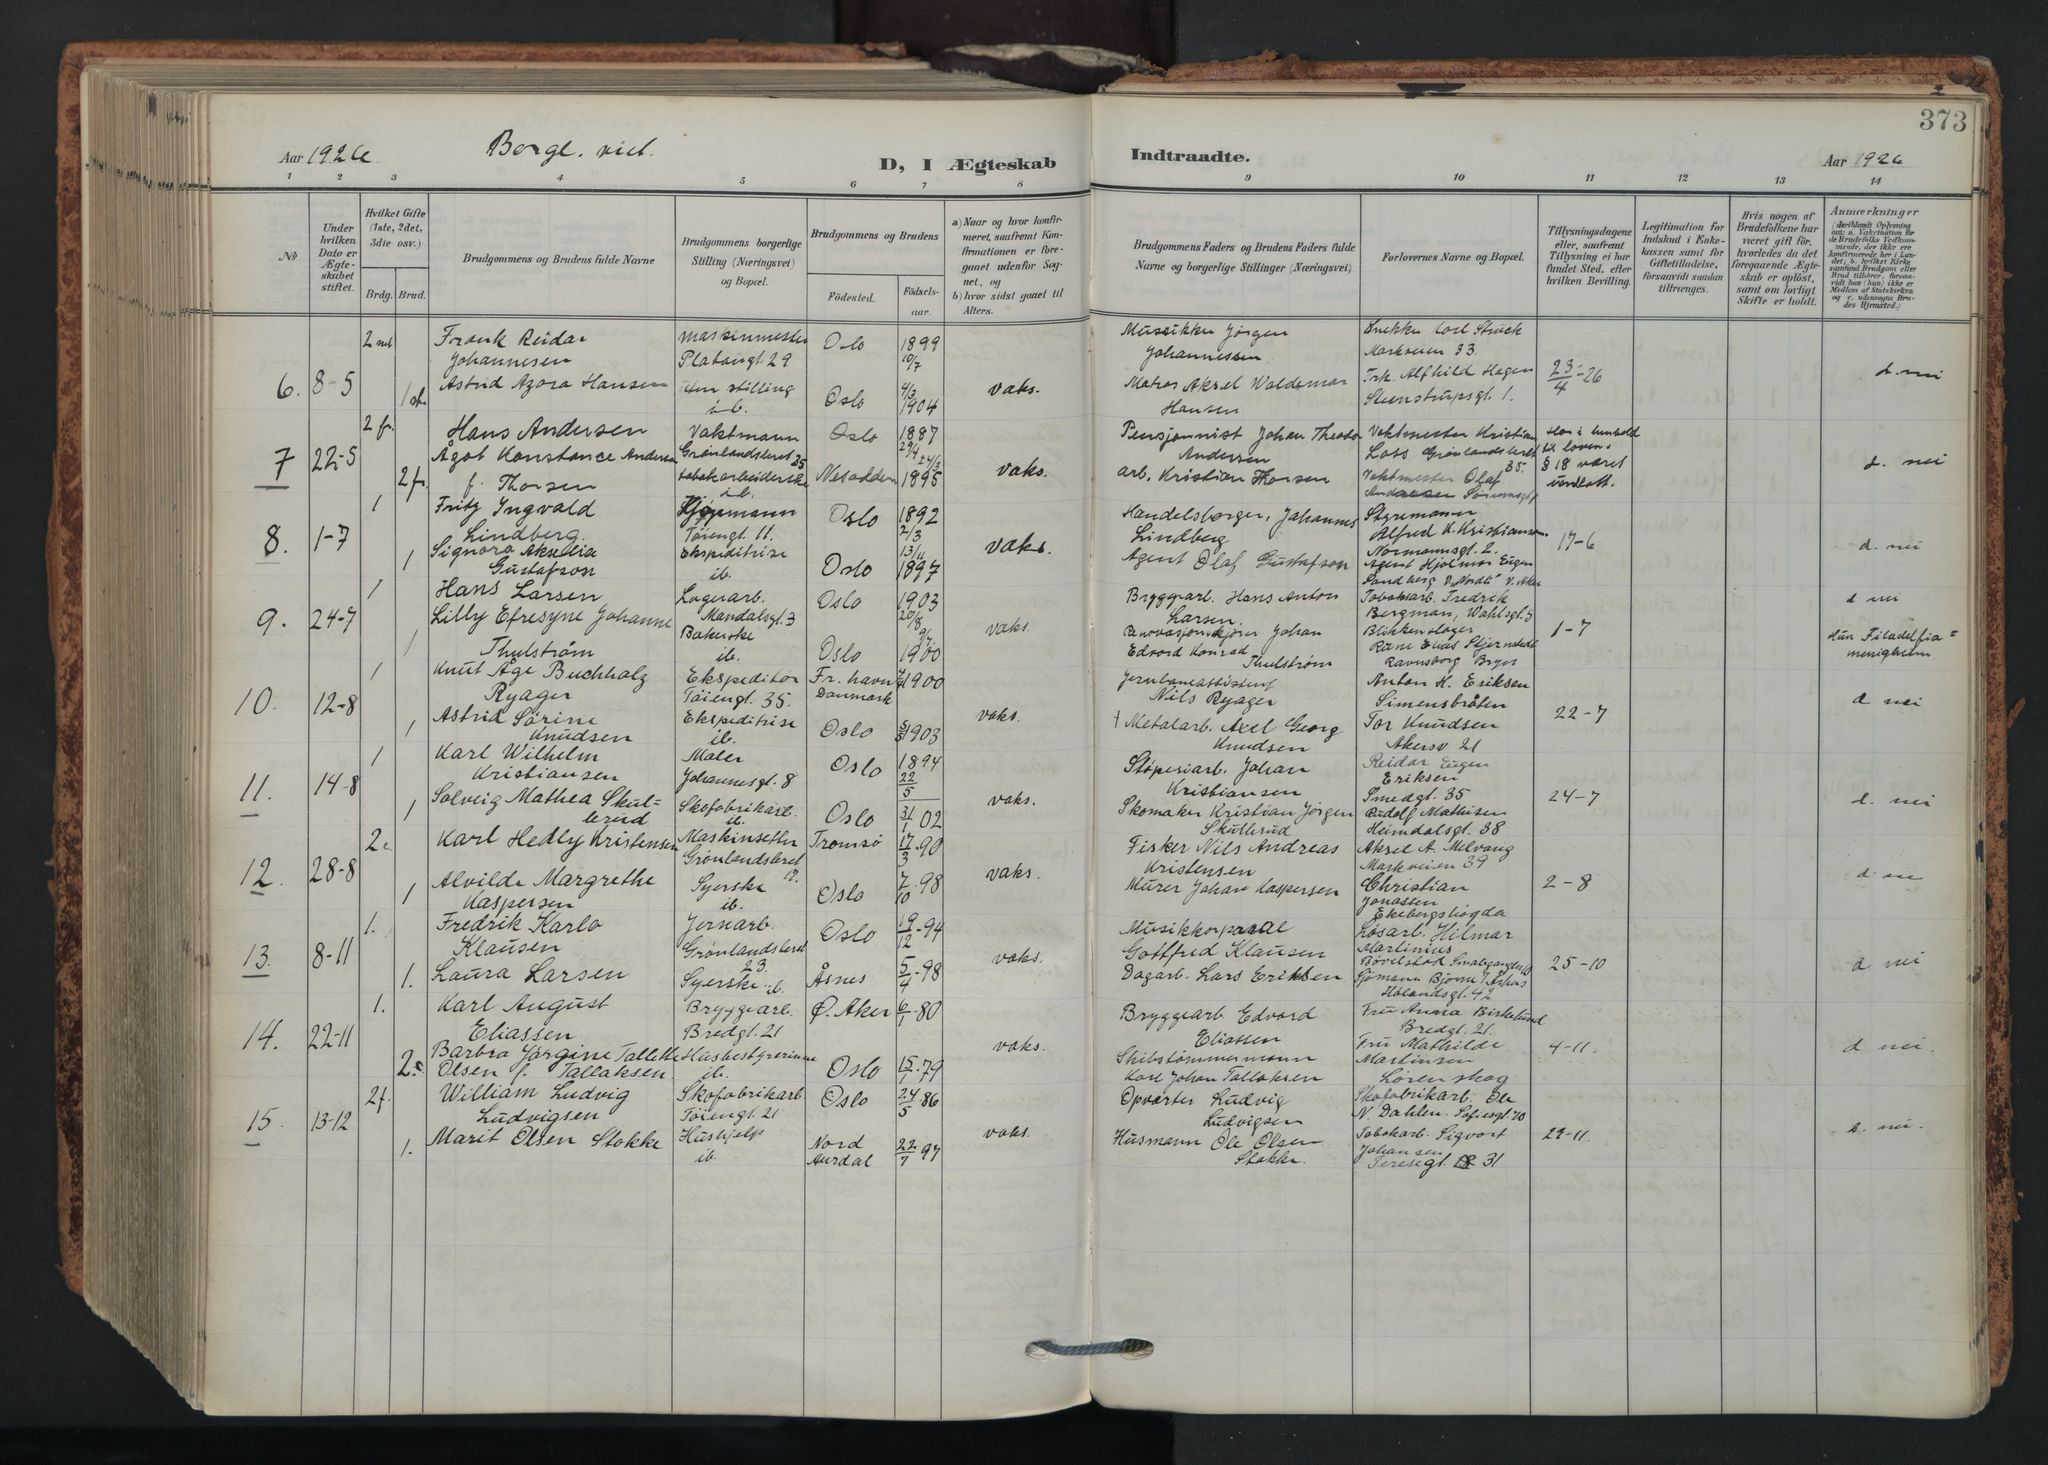 373
Aar 1926
Borgl. viet.
D, I Ægteskab
Indtraadte.
Aar 1926
1 2 3 4 5 6 7 8 9 10 11 12 13 14
No
Under hvilken Dato er Ægteskabet stiftet.
Hvilket Gifte (1ste, 2det, 3die osv.)
Brdg. Brud.
Brudgommens og Brudens fulde Navne
Brudgommens borgerlige Stilling (Næringsvei) og Bopæl.
Brudgommens og Brudens
Fødested.
Fødselsaar.
a) Naar og hvor konfirmeret, saafremt Konfirmationen er foregaaet udenfor Sognet, og
b) hvor sidst gaaet til Alters.
Brudgommens Faders og Brudens Faders fulde Navne og borgerlige Stillinger (Næringsvei)
Forlovernes Navne og Bopæl.
Tillysningsdagene eller, saafremt Tillysning ei har fundet Sted, efter hvilken Bevilling.
Legitimation for Indskud i Enkekassen samt for Giftetilladelse, forsaavidt saadan tiltrænges.
Hvis nogen af Brudefolkene har været gift før, hvorledes da det foregaaende Ægteskab er opløst, samt om lovligt Skifte er holdt.
Anmærkninger
(deriblandt Oplysning om: a. Vaksination for de Brudefolks Vedkommende, der ikke ere konfirmerede her i Landet; b. hvilket Kirkesamfund Brudgom eller Brud tilhører, forsaavidt han (hun) ikke er Medlem af Statskirken og c. udensogns Brudes Hjemsted.)
6. 8-5
Frank Reidar Johannesen
Maskinmester
Platousgt 29
Oslo 1899 10/7
Musikker Jørgen Johannessen
Markveien 33.
1ste
Astrid Agora Hansen
uten stilling
ib.
Oslo 4/3 1904
vaks.
Matros Aksel Waldemar Hansen
Frk. Alfhild Hagen
Steenstrupsgt 1.
23/4-26
d. nei
7 22-5
2 fr.
Hans Andersen
Vaktmann
Grønlandsleret 35
Oslo 1887 29/4
Pensjonnist Johan Theodor Andersen
Vaktmester Kristian
Loss Grønlandsleret 35.
2 fr.
Ågot Konstance Andersen
f. Thorsen
tobakarbeiderske
ib.
Nesodden 24/3 1895
vaks.
arb. Kristian Thorsen
Vaktmester Olaf
har i henhold til lovens § 18 været
d. nei
8. 1-7
1
Fritz Ingvald Lindberg.
Kjøpmann
Tøiengt 11.
Oslo 1892 2/3
Handelsborger, Johannes Lindberg
Styrmann
Alfred K. Kristiansen
Normannsgt. 2.
1
Signora Akselia Gustafson
Ekspeditrise
ib.
Oslo 13/11 1897
vaks.
Agent Olaf Gustafson
Agent Hjalmar Eugen
Sandberg V. "Nordli" V. Aker
17-6
d. nei
9. 24-7
1
Hans Larsen
Lagerarb.
Mandalsgt. 3
Oslo 1903 20/8
Bryggarb. Hans Anton Larsen.
Tobakarb. Fredrik
Bergman, Wahlsgt. 3
1
Lilly Efresyne Johanne Thulstrøm
Bakerske
ib.
Oslo 9/7. 1900
vaks.
Renovasjonskjører Johan Edvard Konrad Thulstrøm
Blikkenslager
Rane Elias Stjernstedt
Ravnsborg Bryn
1-7
d nei
Hun Filadelfia=menigheten
10. 12-8
1
Knut Åge Buchholz Ryager
Ekspeditor
Tøiengt. 35.
Fr. havn Danmark 1900
Jernbaneassistent Nils Ryager
Anton H. Eriksen
Simensbråten
1
Astrid Sørine Knudsen
Ekspeditrise
ib.
Oslo 1903
vaks.
† Metalarb. Axel Georg Knudsen
Tor Knudsen
Akersv 21
22-7
d nei
11. 14-8
1
Karl Wilhelm Kristiansen
Maler
Johannesgt. 8
Oslo 1894 22/5
Støperiarb. Johan Kristiansen
Reidar Eugen Eriksen
Smedgt. 35
1
Solveig Mathea Skullerud
Skofabrikarb.
ib.
Oslo 31/1 02
vaks.
Skomaker Kristian Jørgen Skullerud
Rudolf Mathisen
Heimdalsgt. 38
24-7
d. nei
12. 28-8
2
Karl Hedly Kristensen
Maskinsetter
Grønlandsleret 12.
Tromsø 17/3-90
Fisker Nils Andreas Kristensen
Aksel A. Melvang
Markveien 39
1
Alvilde Margrethe Kaspersen
Syerske
ib.
Oslo 7/10-98
vaks.
Murer Johan Kaspersen
Christian Jonassen
Ekebergshøgda
2-8
13. 8-11
1.
Fredrik Karlo Klausen
Jernarb.
Grønlandsleret 23.
Oslo 19/12-94
Musikkorporal Gottfred Klausen
Losarb. Hilmar Martinius
1.
Laura Larsen
Syerske ib.
Åsnes 5/4-98
vaks.
Dagarb. Lars Eriksen
Sjømann Bjarne
Hølandsgt. 42
25-10
d nei
14. 22-11
1.
Karl August Eliassen
Bryggearb.
Bredgt. 21
Ø. Aker 6/1-80
Bryggearb Edvard Eliassen
Fru Anna Birkelund
Bredgt. 21.
Barbra Jørgine Tallette Olsen f. Tallaksen
Husbestyrerinne
ib.
Oslo 15/1-79
vaks.
Skibstømmermann Karl Johan Tallaksen
Fru Mathilde Martinsen
Lørenskog
4-11.
d nei.
15. 13-12
2f.
William Ludvig Ludvigsen
Skofabrikarb
Tøiengt. 21
Oslo 24/5 86
Opvarter Ludvig Ludvigsen
Skofabrikarb. Ole
N. Dahlen. Sofiesgt. 70
1.
Marit Olsen Stokke
Hushjelp
ib.
Nord Aurdal 22/7 97
vaks.
Husmann Ole Olsen Stokke.
Tobakarb. Sigvart Johansen
Teresegt. 31
29-11.
d. nei.